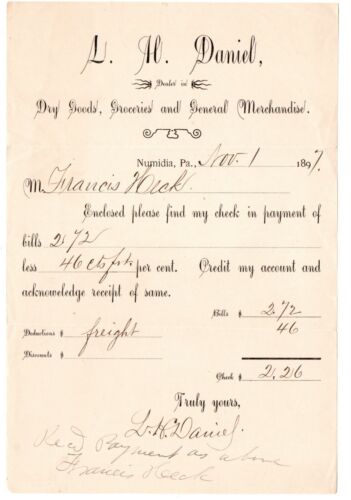 L. H. Daniel,
Dealer in
Dry Goods, Groceries and General Merchandise.
Numidia, Pa., Nov. 1 1897.
M Francis Heck.
Enclosed please find my check in payment of
bills 2 72
less 46 cts frt. per cent. Credit my account and
acknoweledge receipt of same.
Bills $ 2 72
46
Deductions $ freight
Discounts $
Check $ 2.26
Truly yours,
L. H. Daniel.
Rec'd Payment as above
Francis Heck